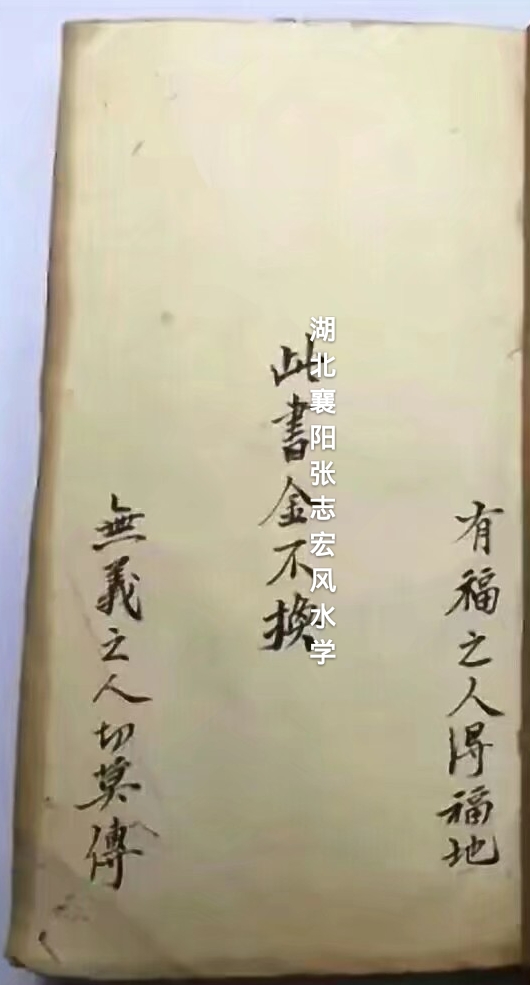 有福之人得福地
此書金不換
無義之人切莫傳
湖北襄阳张志宏风水学